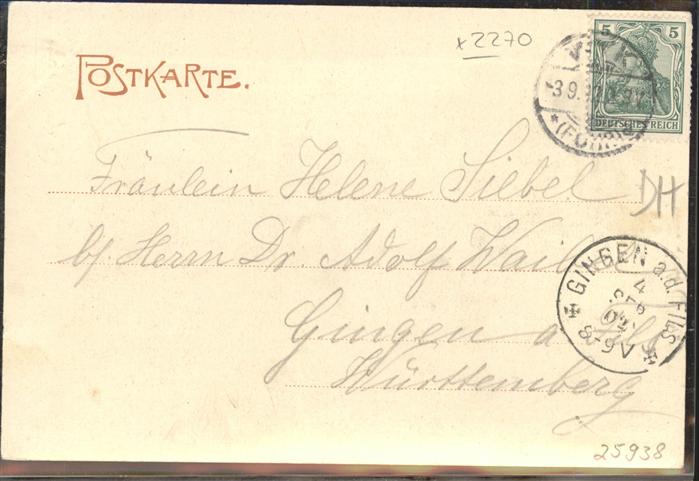 x 2270
POSTKARTE.
5 5
DEUTSCHES REICH
WYK
3.9.
*(FÖHR)
Fräulein Helene Siebel
DH
b/ Herrn Dr. Adolf Wail
GINGEN a.d. FILS
4
SEP
02
8-9V
Gingen a/ Fils
Württemberg
25938